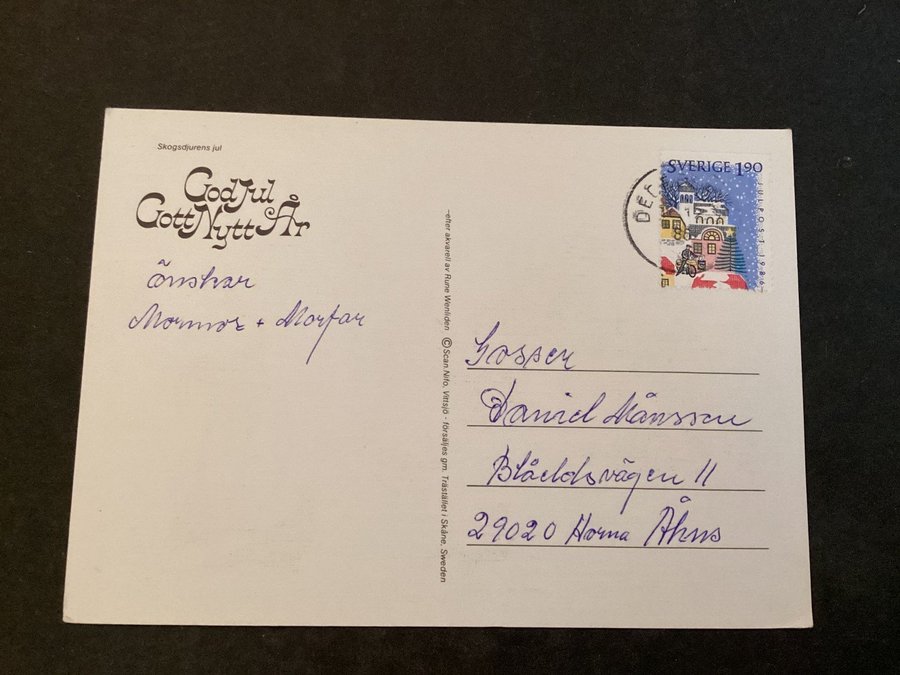 Skogsdjurens jul
God Jul
Gott Nytt År
önskar
Mormor + Morfar
–efter akvarell av Rune Wenliden © Scan.Nifo, Vittsjö - försäljes gm. Trästället i Skåne, Sweden
SVERIGE 1.90
JULPOST 1986
DEC
86
Gossen
Daniel Månsson
Blåeldsvägen 11
29020 Horna Åhus